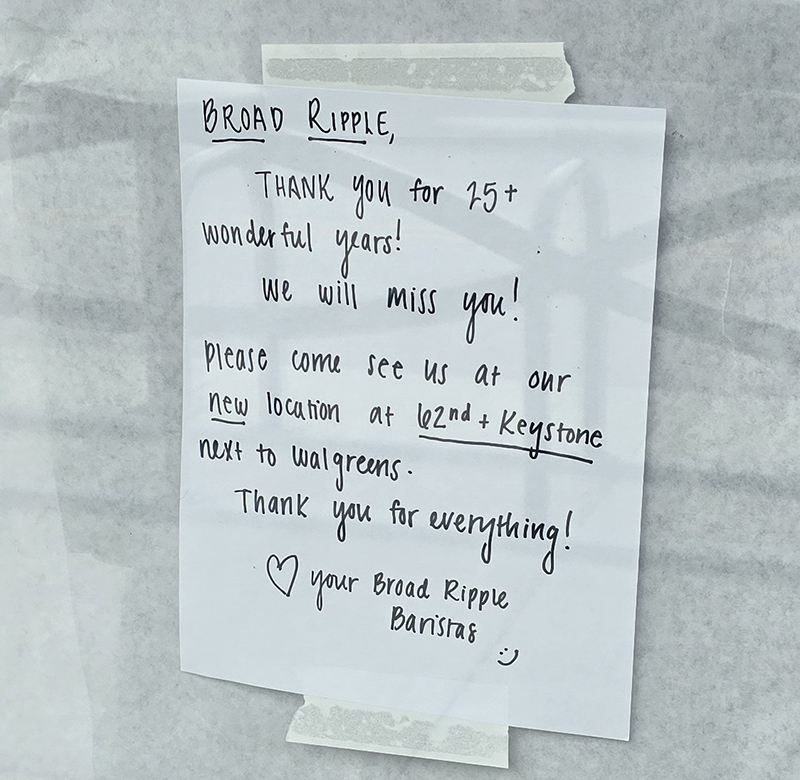 BROAD RIPPLE,
THANK you for 25+
wonderful years!
We will miss you!
please come see us at our
new location at 62nd + Keystone
next to walgreens.
Thank you for everything!
♡ your Broad Ripple
Baristas
:)